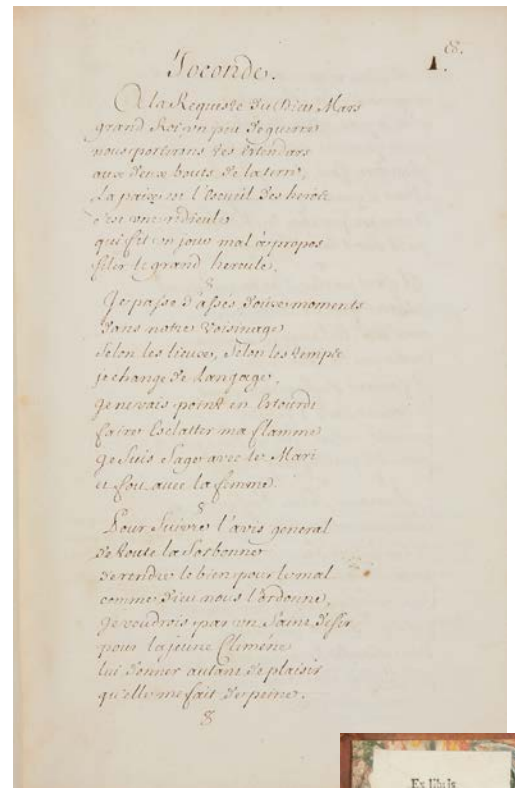 8.
1.
Joconde.
A la Requeste du Dieu Mars
grand Roi, un peu de guerre
nous porterons des Estendars
aux deux bouts de la terre,
La paix est l'Escueil des heros
c'est une ridicule
qui fit un jour mal à propos
filer le grand hercule.
8
Je passe d'assés doux moments
dans notre Voisinage
Selon les lieux, Selon les temps
je change de Langage.
Je ne vais point en Estourdi
faire Esclatter ma flamme
Je Suis Sage avec le Mari
et fou avec la femme.
8
Pour Suivre l'avis general
de toute la Sorbonne
de rendre le bien pour le mal
comme dieu nous l'ordonne,
Je voudrois par un Saint desir
pour la jeune Climéne
lui donner autant de plaisir
qu'elle me fait de peine.
8
Ex libris